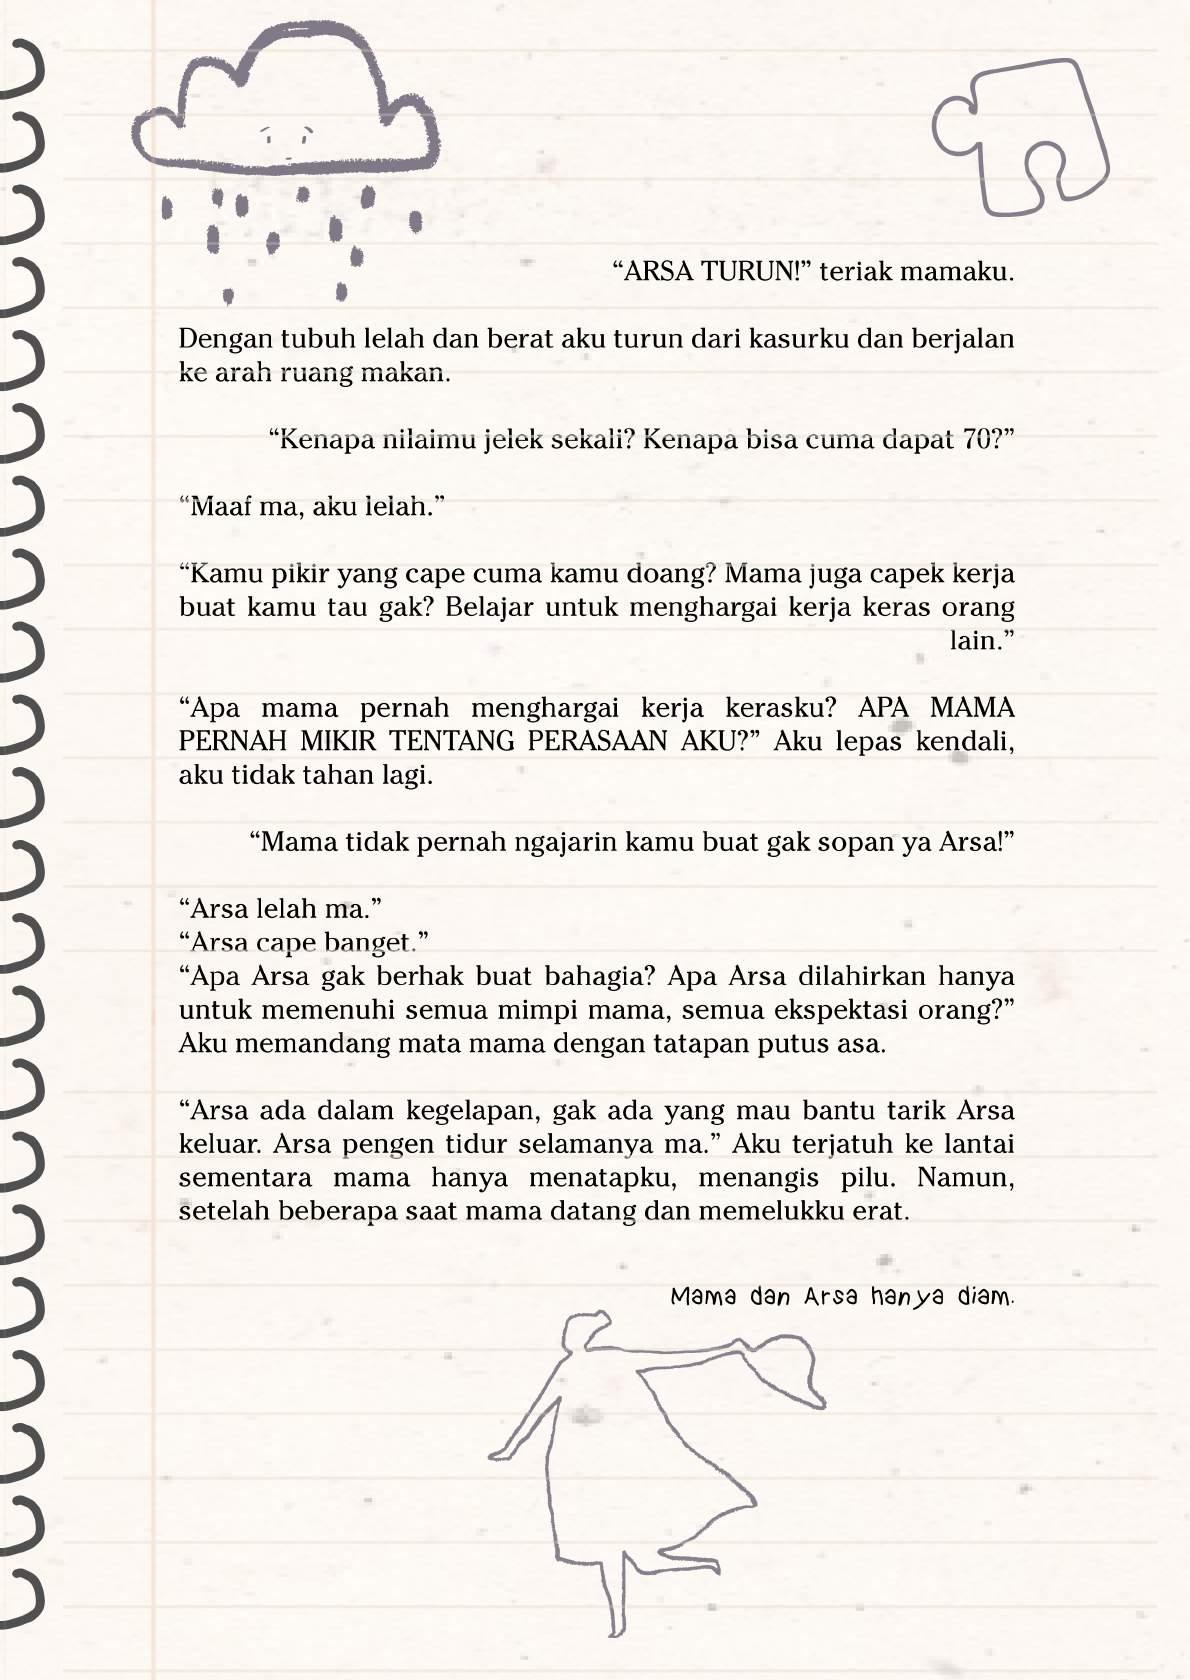 “ARSA TURUN!” teriak mamaku.
Dengan tubuh lelah dan berat aku turun dari kasurku dan berjalan
ke arah ruang makan.
“Kenapa nilaimu jelek sekali? Kenapa bisa cuma dapat 70?”
“Maaf ma, aku lelah.”
“Kamu pikir yang cape cuma kamu doang? Mama juga capek kerja
buat kamu tau gak? Belajar untuk menghargai kerja keras orang
lain.”
“Apa mama pernah menghargai kerja kerasku? APA MAMA
PERNAH MIKIR TENTANG PERASAAN AKU?” Aku lepas kendali,
aku tidak tahan lagi.
“Mama tidak pernah ngajarin kamu buat gak sopan ya Arsa!”
“Arsa lelah ma.”
“Arsa cape banget.”
“Apa Arsa gak berhak buat bahagia? Apa Arsa dilahirkan hanya
untuk memenuhi semua mimpi mama, semua ekspektasi orang?”
Aku memandang mata mama dengan tatapan putus asa.
“Arsa ada dalam kegelapan, gak ada yang mau bantu tarik Arsa
keluar. Arsa pengen tidur selamanya ma.” Aku terjatuh ke lantai
sementara mama hanya menatapku, menangis pilu. Namun,
setelah beberapa saat mama datang dan memelukku erat.
Mama dan Arsa hanya diam.